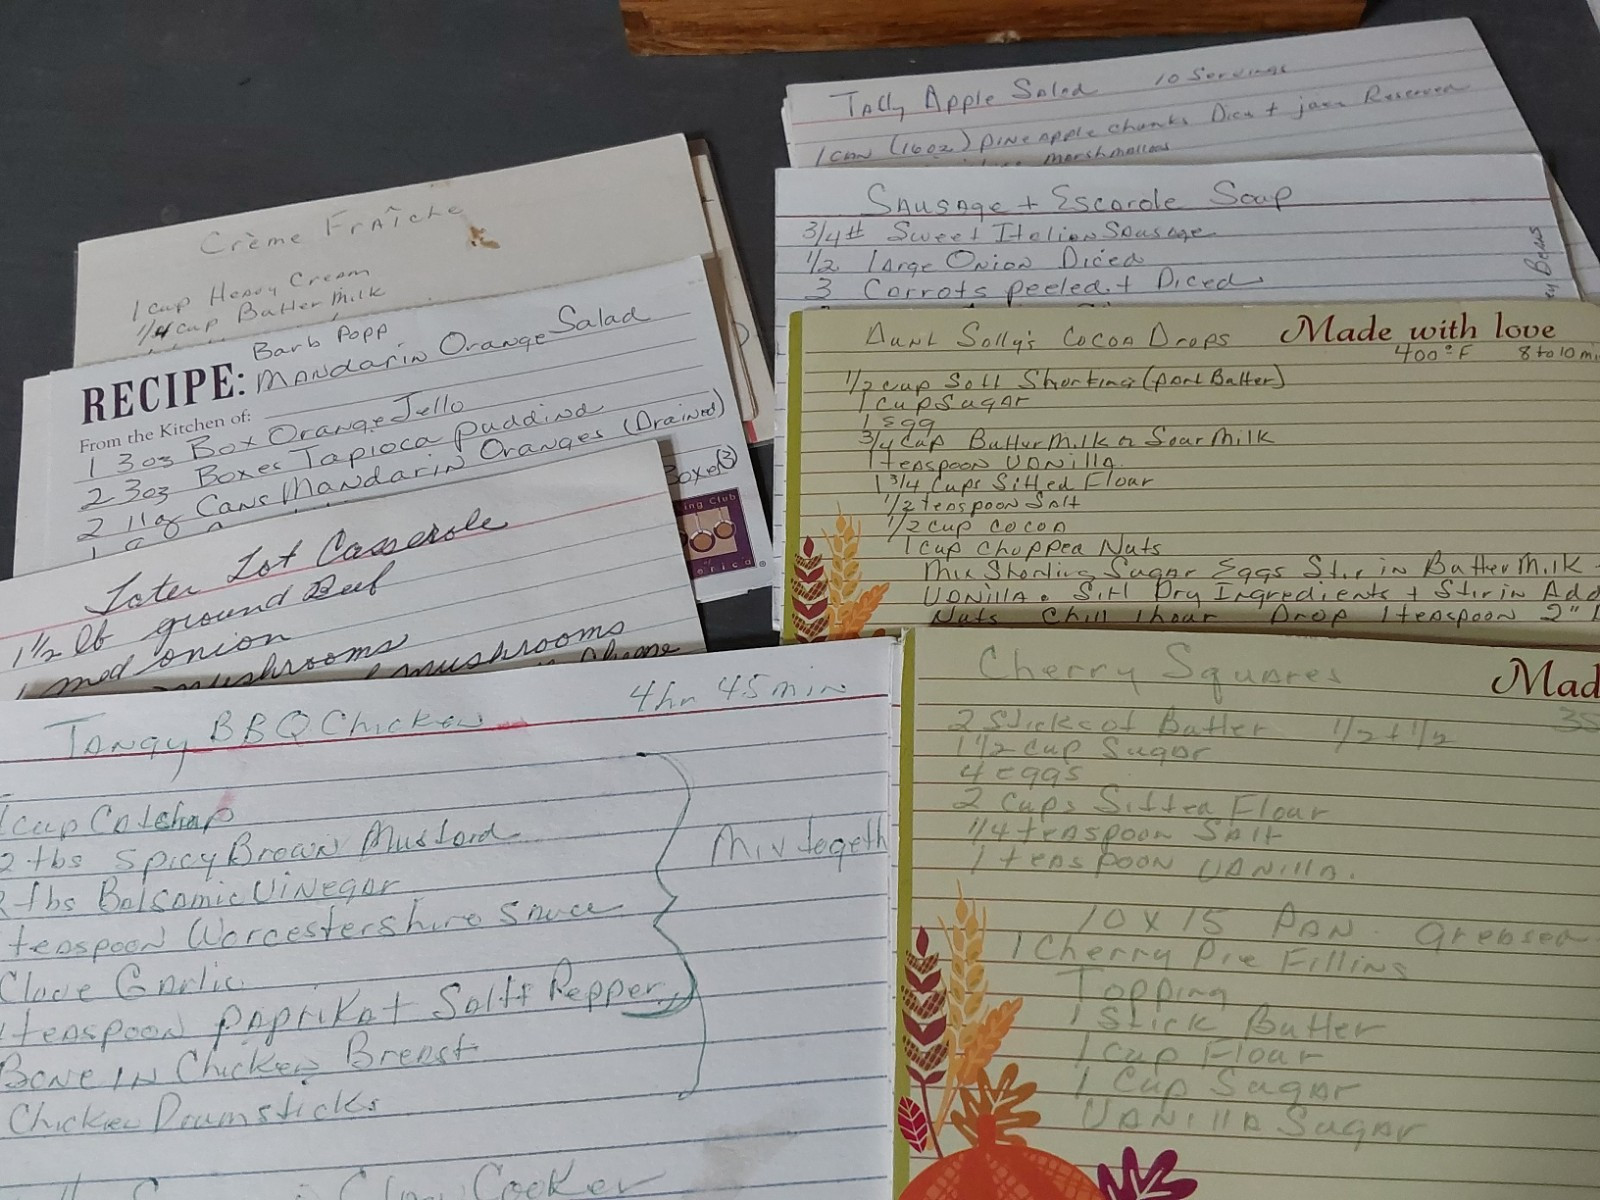 Crème Fraîche
1 cup Heavy Cream
1/4 cup Butter Milk
Barb Popp
RECIPE: Mandarin Orange Salad
From the Kitchen of:
1 3oz Box Orange Jello
2 3oz Boxes Tapioca pudding
2 11oz Cans Mandarin Oranges (Drained)
Boxes (3)
ing Club
erica
Tater Tot Casserole
1 1/2 lb ground Beef
1 med onion
mushrooms
mushrooms
Tangy BBQ Chicken 4hr 45min
1 cup Catchup
2 tbs Spicy Brown Mustard
2 tbs Balsamic Vinegar
teaspoon Worcestershire Sauce
Clove Garlic
1 teaspoon paprika + Salt + Pepper
Bone IN Chicken Breast
Chicken Drumsticks
Mix togeth
Slow Cooker
Taffy Apple Salad 10 Servings
1 can (16oz) pineapple chunks Dice + juice Reserved
marshmallows
Sausage + Escarole Soup
3/4# Sweet Italian Sausage
1/2 large Onion Diced
3 Carrots peeled + Diced
Aunt Sally's Cocoa Drops Made with love
400°F 8 to 10 min
1/2 cup Soft Shorting (part Butter)
1 cup Sugar
1 Egg
3/4 cup Butter Milk or Sour Milk
1 teaspoon Vanilla
1 3/4 Cups Sifted Flour
1/2 teaspoon Salt
1/2 cup cocoa
1 cup chopped Nuts
Mix Shorting Sugar Eggs Stir in Butter Milk +
Vanilla. Sift Dry Ingredients + Stir in Add
Nuts Chill 1 hour Drop 1 teaspoon 2"
Cherry Squares Mad
2 Sticks of Butter 1/2 + 1/2 35
1 1/2 cup Sugar
4 eggs
2 Cups Sifted Flour
1/4 teaspoon Salt
1 teaspoon Vanilla.
10 x 15 Pan Greased
1 Cherry Pie Filling
Topping
1 Stick Butter
1 Cup Flour
1 Cup Sugar
Vanilla Sugar